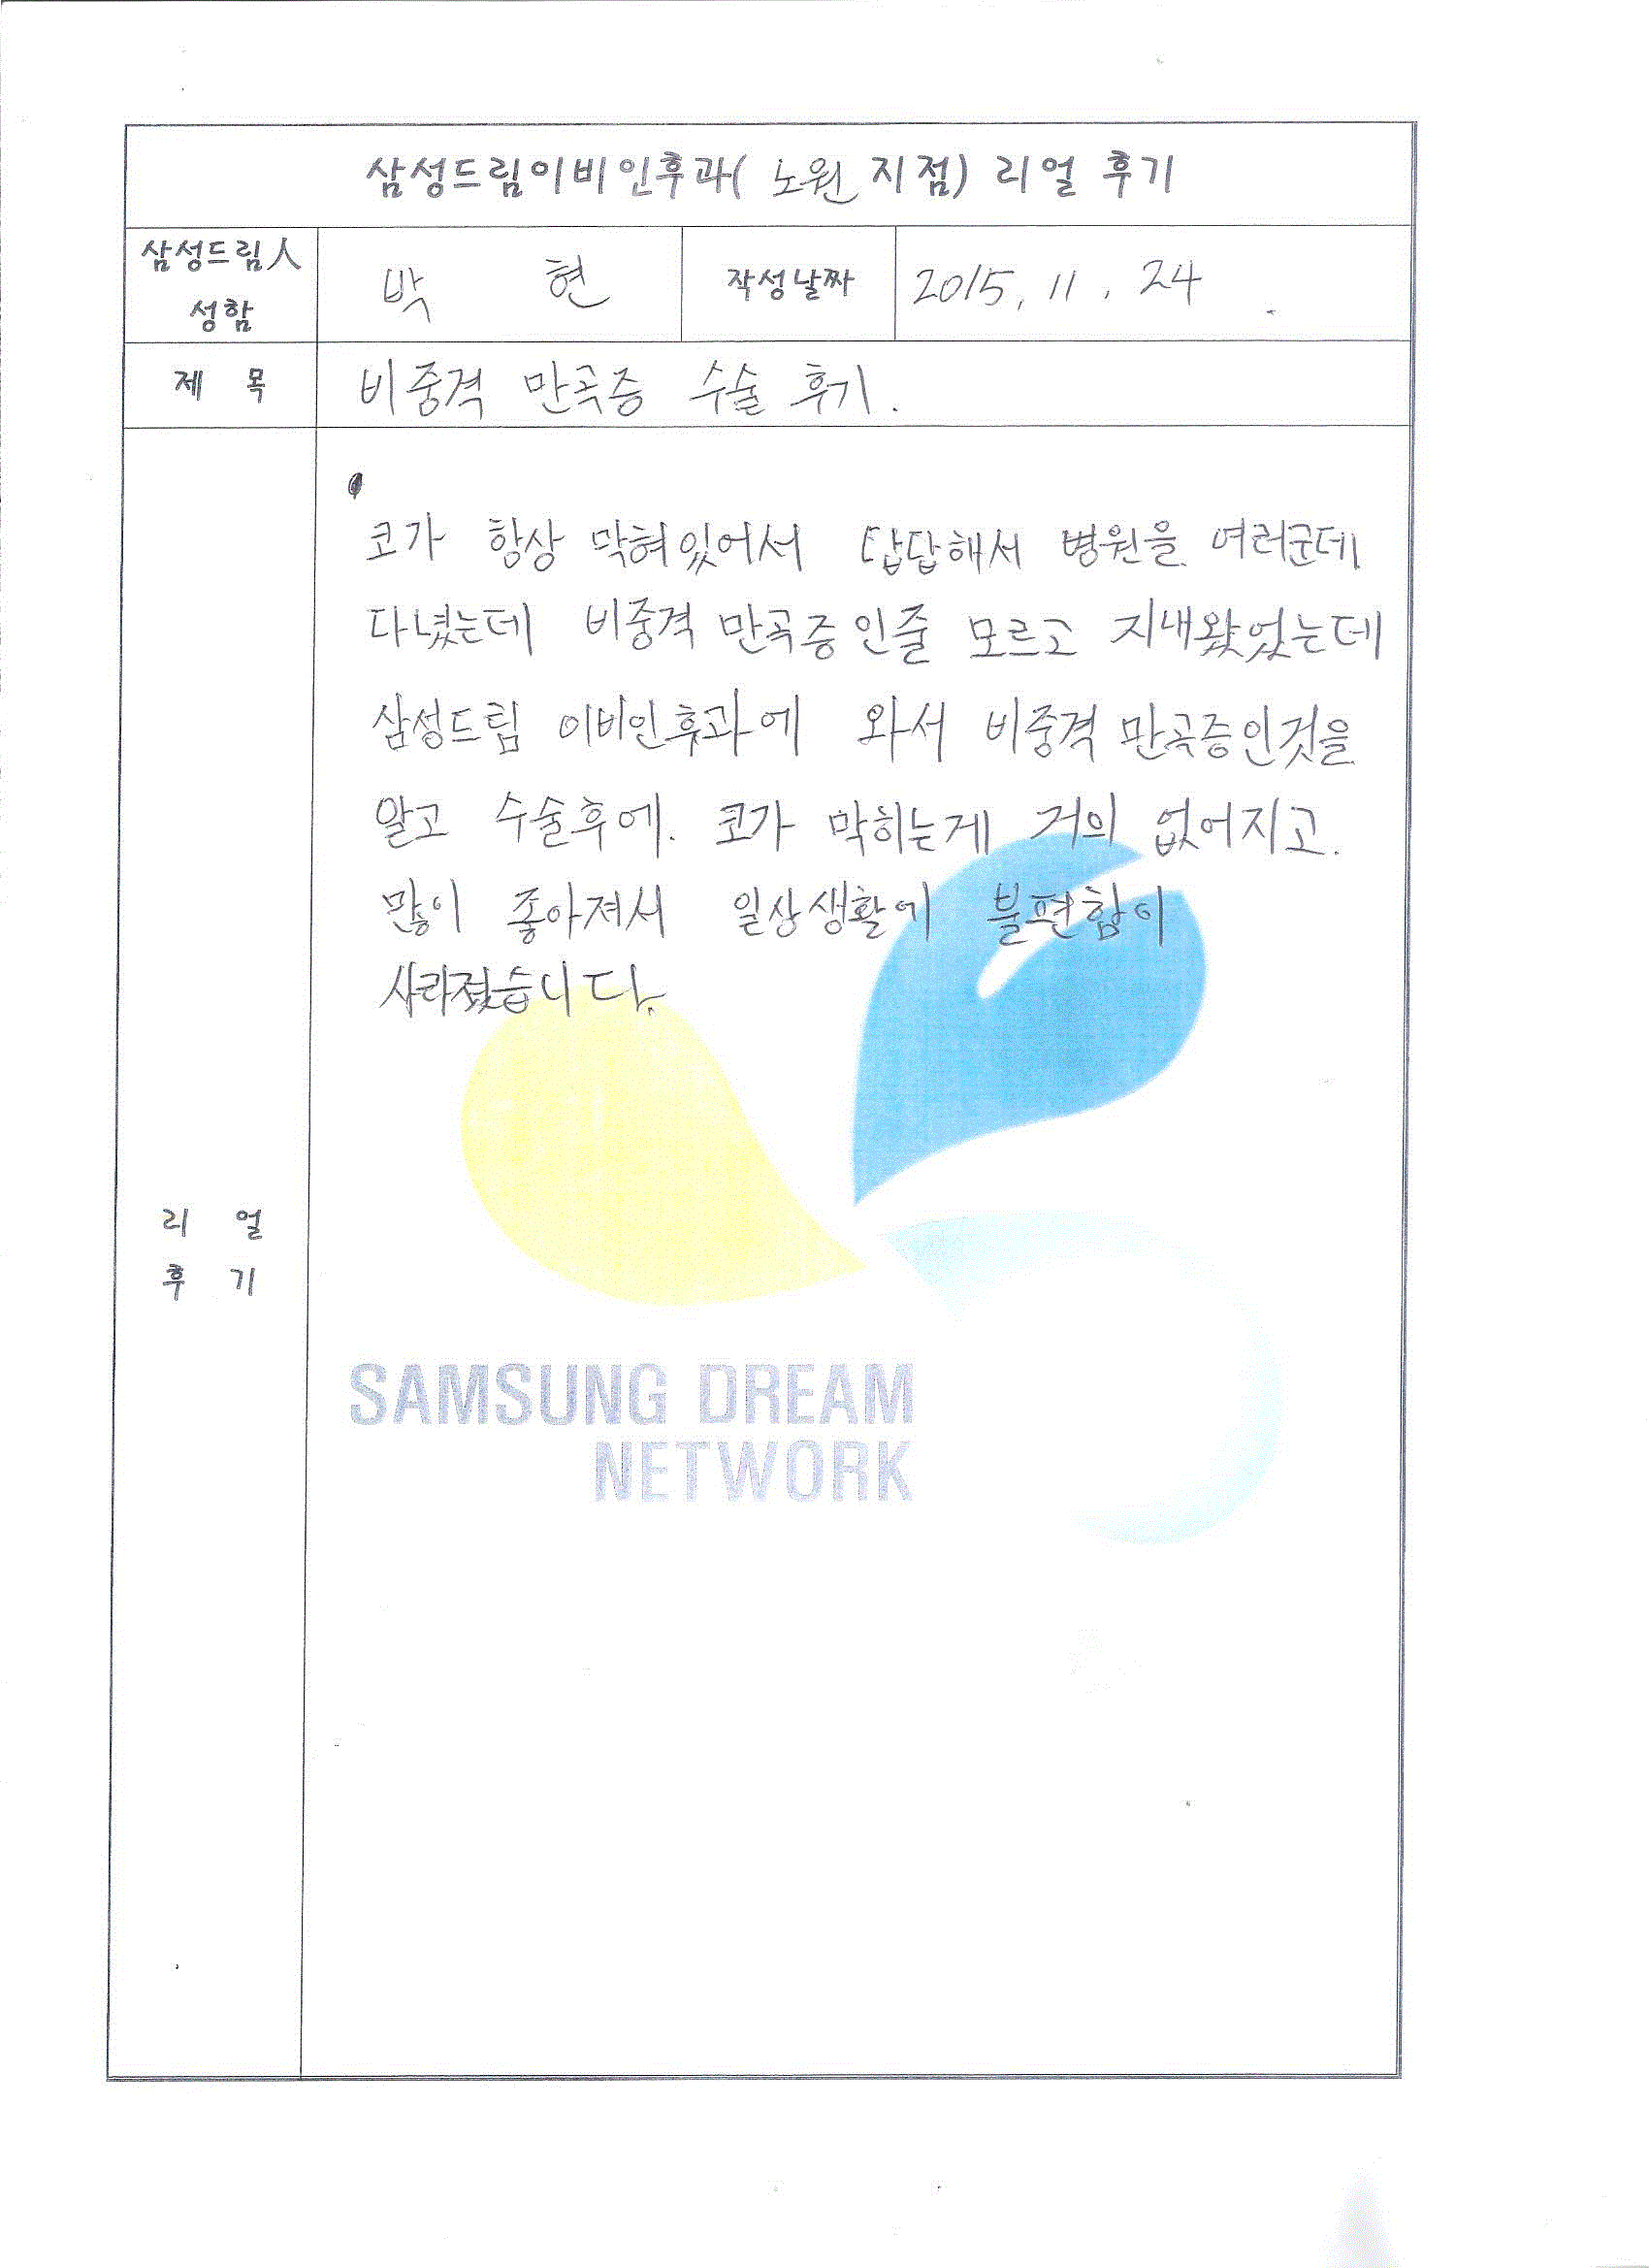 삼성드림이비인후과( 노원 지점) 리얼 후기
삼성드림人
성함
박 현
작성날짜
2015. 11. 24.
제 목
비중격 만곡증 수술 후기.
코가 항상 막혀있어서 답답해서 병원을 여러군데
다녔는데 비중격 만곡증인줄 모르고 지내왔었는데
삼성드림 이비인후과에 와서 비중격 만곡증인것을
알고 수술후에. 코가 막히는게 거의 없어지고.
많이 좋아져서 일상생활에 불편함이
사라졌습니다.
리 얼
후 기
SAMSUNG DREAM
NETWORK